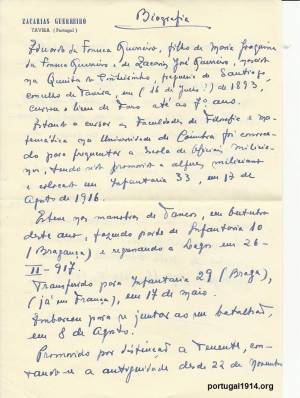 ZACARIAS GUERREIRO
TAVIRA (Portugal)
Biografia
Eduardo da Franca Guerreiro, filho de Maria Joaquina
da Franca Guerreiro e de Zacarias José Guerreiro, nasceu
na Quinta do freguesia de Santiago,
concelho de Tavira, em (16 de Julho?) de 1893,
cursou o liceu de Faro até ao 7º ano.
Estando a cursar as Faculdades de Filosofia e ma-
temática na Universidade de Coimbra foi convoca-
do para frequentar a Escola de Oficiais milicia-
nos, tendo sido promovido a alferes miliciano
e colocado em Infantaria 33, em 17 de
Agosto de 1916.
Esteve nas manobras de Tancos, em outubro
deste ano, fazendo parte de Infantaria 10
(Bragança) e regressando a Lagos em 26-
II-917.
Transferido para Infantaria 29 (Braga),
(já em França), em 17 de maio.
Embarcou para se juntar ao seu batalhão,
em 8 de Agosto.
Promovido por distinção a Tenente, con-
tando-se a antiguidade desde 22 de Novembro
portugal1914.org